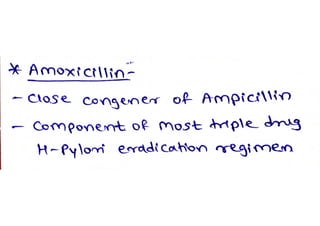 * Amoxicillin-
- Close congener of Ampicillin
- Component of most triple drug
H-Pylori eradication regimen